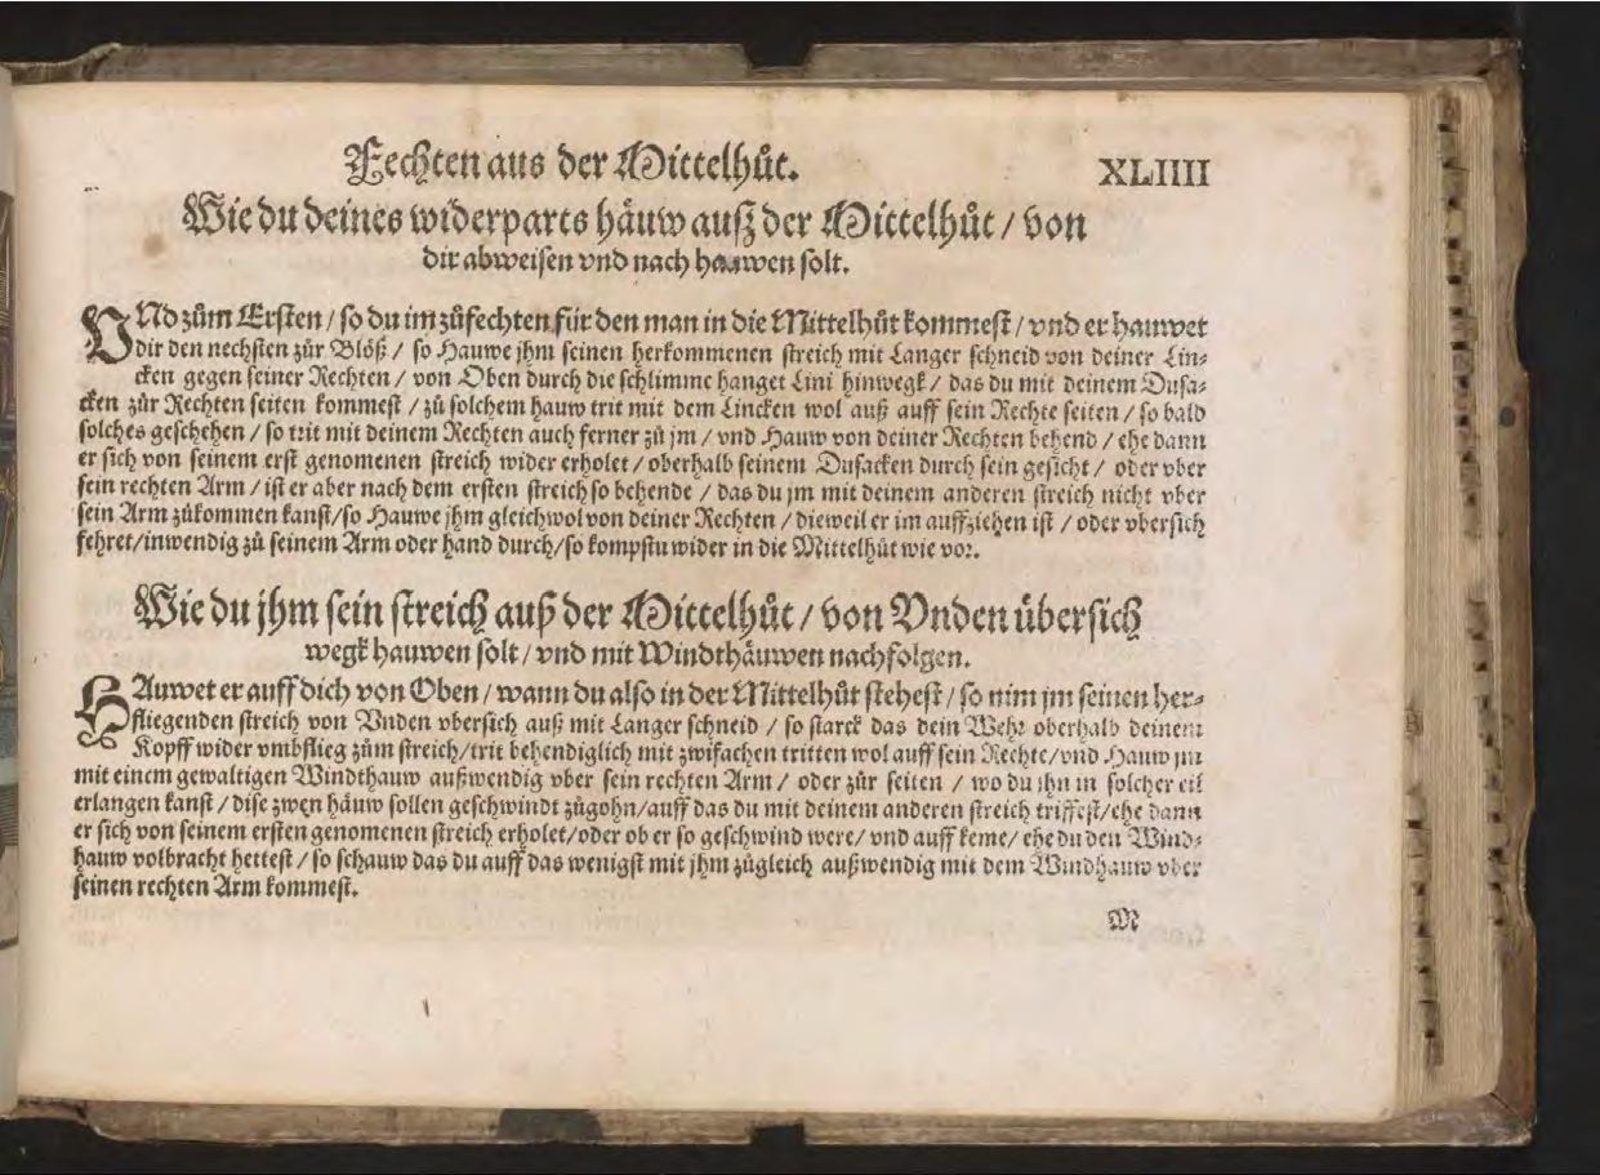 Fechten aus der Mittelhůt. XLIIII
Wie du deines widerparts häuw außz der Mittelhůt / von
dir abweisen vnd nach hauwen solt.
VNd zům Ersten / so du im zůfechten für den man in die Mittelhůt kommest / vnd er hauwet
dir den nechsten zůr Blöß / so Hauwe jhm seinen herkommenen streich mit Langer schneid von deiner Lin-
cken gegen seiner Rechten / von Oben durch die schlimme hanget Lini hinwegk / das du mit deinem Dusa-
cken zůr Rechten seiten kommest / zů solchem hauw trit mit dem Lincken wol auß auff sein Rechte seiten / so bald
solches geschehen / so trit mit deinem Rechten auch ferner zů jm / vnd Hauw von deiner Rechten behend / ehe dann
er sich von seinem erst genomenen streich wider erholet / oberhalb seinem Dusacken durch sein gesicht / oder vber
sein rechten Arm / ist er aber nach dem ersten streich so behende / das du jm mit deinem anderen streich nicht vber
sein Arm zůkommen kanst / so Hauwe jhm gleichwol von deiner Rechten / dieweil er im auffziehen ist / oder vbersich
fehret / inwendig zů seinem Arm oder hand durch / so kompstu wider in die Mittelhůt wie vor.
Wie du jhm sein streich auß der Mittelhůt / von Vnden übersich
wegk hauwen solt / vnd mit Windthäuwen nachfolgen.
HAuwet er auff dich von Oben / wann du also in der Mittelhůt stehest / so nim jm seinen her-
fliegenden streich von Vnden vbersich auß mit Langer schneid / so starck das dein Wehr oberhalb deinem
Kopff wider vmbflieg zům streich / trit behendiglich mit zwifachen tritten wol auff sein Rechte / vnd Hauw jm
mit einem gewaltigen Windthauw außwendig vber sein rechten Arm / oder zůr seiten / wo du jhn in solcher eil
erlangen kanst / dise zwen häuw sollen geschwindt zůgohn / auff das du mit deinem anderen streich triffest / ehe dann
er sich von seinem ersten genomenen streich erholet / oder ob er so geschwind were / vnd auff keme / ehe du den Wind-
hauw volbracht hettest / so schauw das du auff das wenigst mit jhm zůgleich außwendig mit dem Windhauw vber
seinen rechten Arm kommest.
M